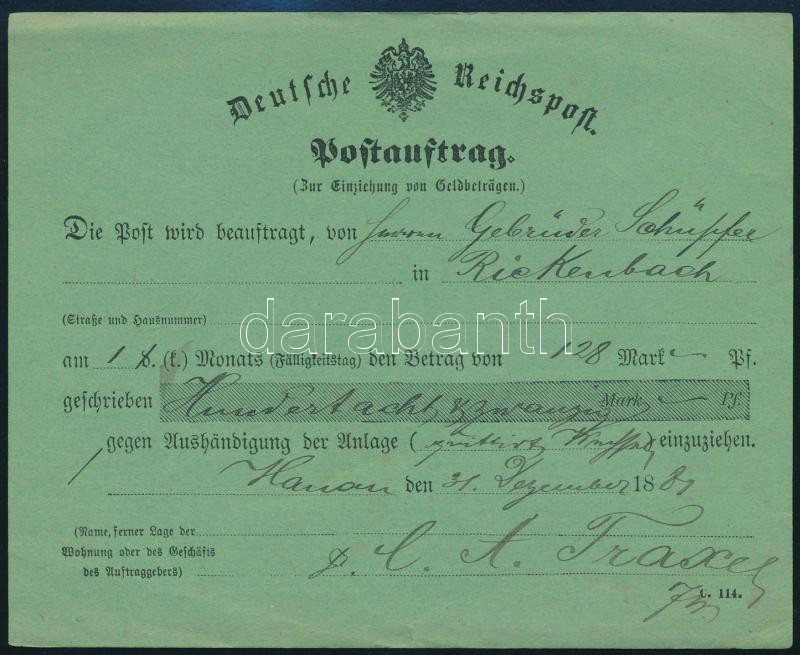 Deutsche Reichspost.
Postauftrag.
(Zur Einziehung von Geldbeträgen.)
Die Post wird beauftragt, von Herren Gebrüder Schüpfer
in Rickenbach
(Straße und Hausnummer)
darabanth
am 1 d. (k.) Monats (Fälligkeitstag) den Betrag von 128 Mark — Pf.
geschrieben Hundertacht & zwanzig Mark — Pf.
gegen Aushändigung der Anlage (quittirt Wechsel) einzuziehen.
Hanau den 31. Dezember 1881
(Name, ferner Lage der
Wohnung oder des Geschäfts
des Auftraggebers) p. C. A. Traxel
C. 114.